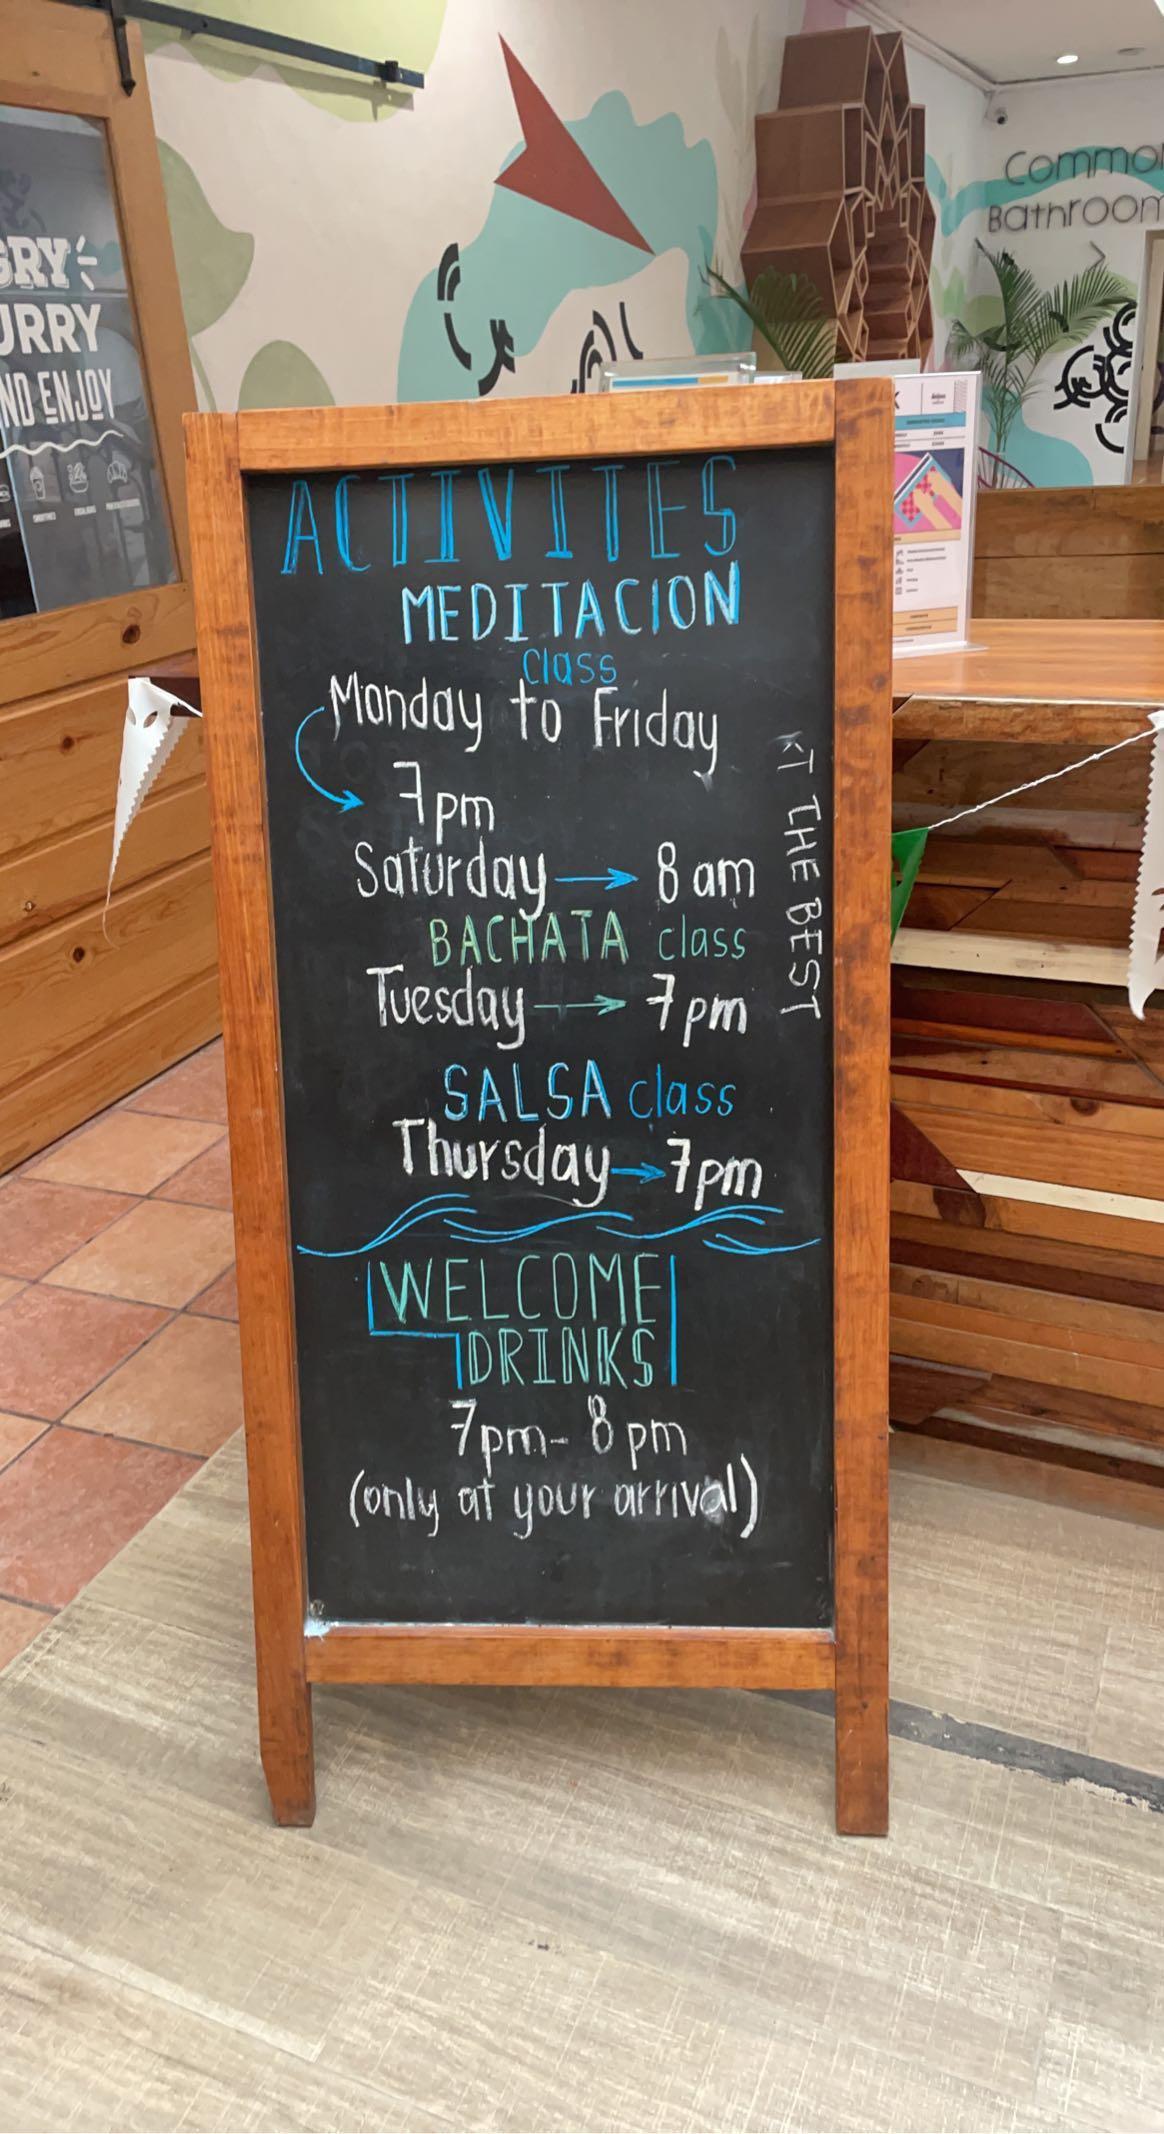 ACTIVITES
MEDITACION
class
Monday to Friday
7pm
Saturday → 8 am
BACHATA class
Tuesday → 7 pm
SALSA class
Thursday → 7pm
WELCOME
DRINKS
7pm - 8 pm
(only at your arrival)
KT THE BEST
GRY
URRY
ND ENJOY
Common
Bathroom
>